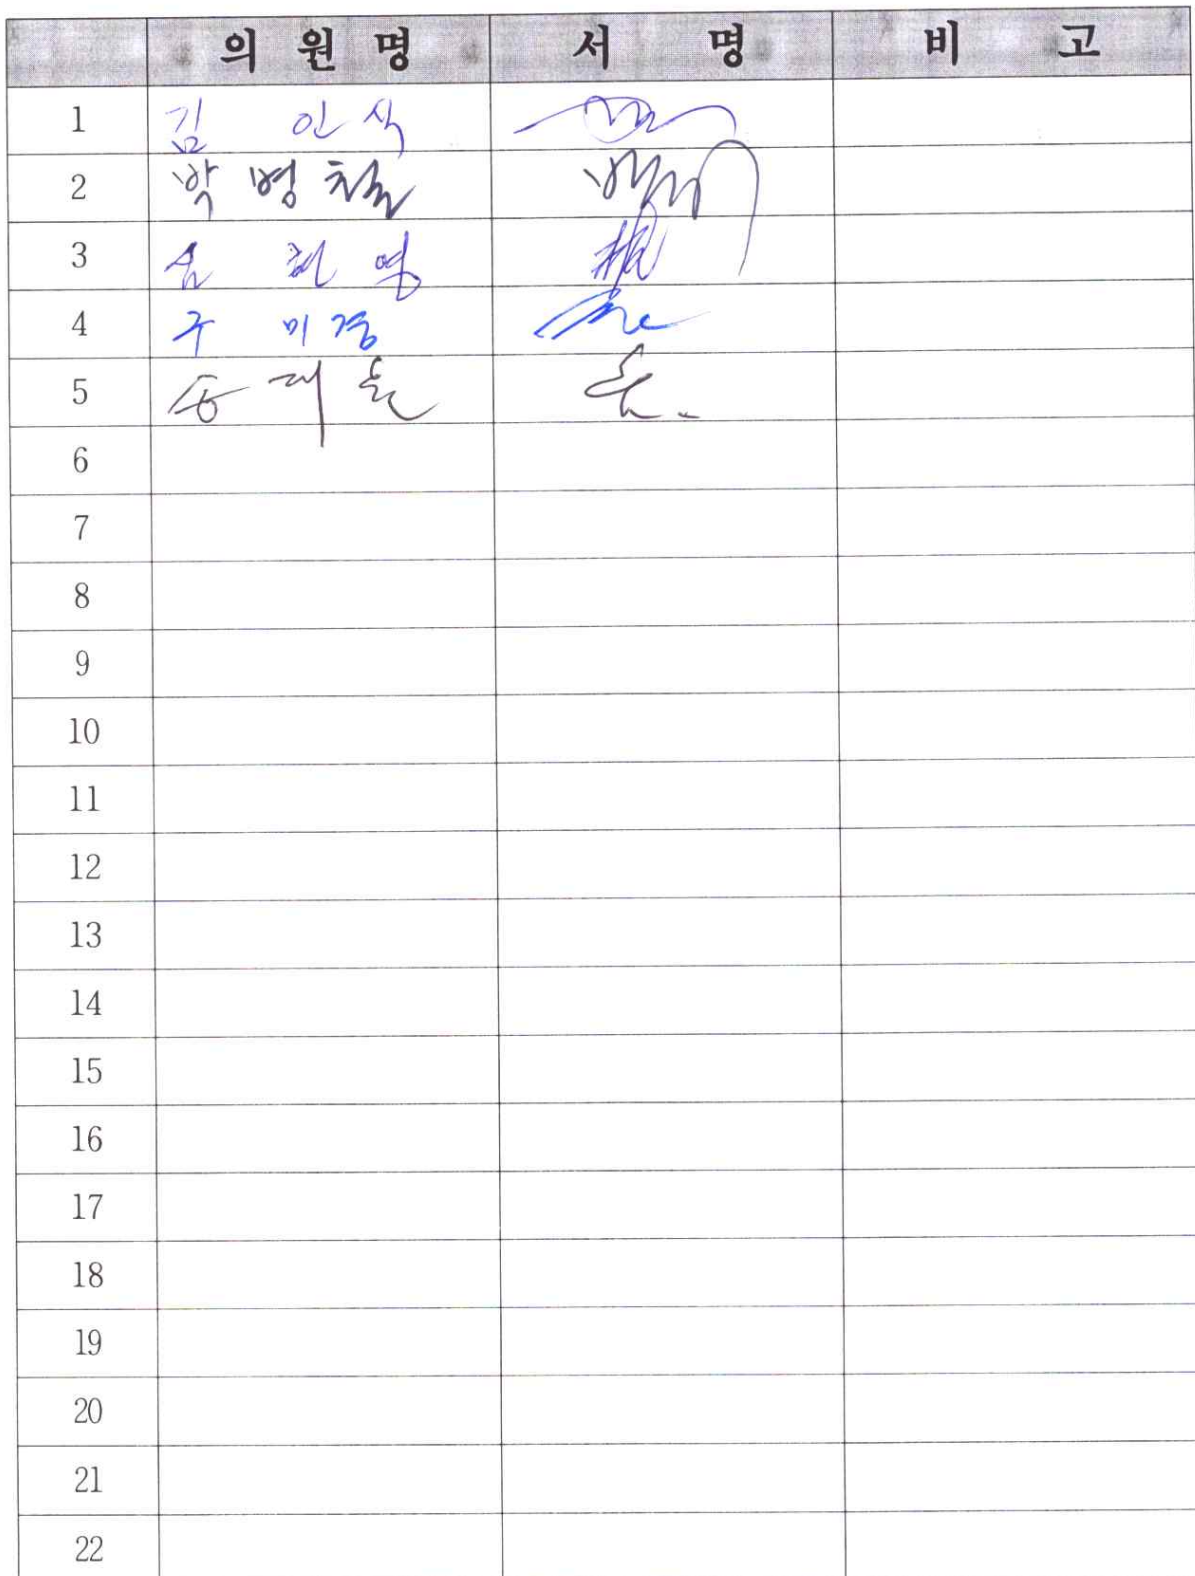 의 원 명 서 명 비 고
1 김 인 식
2 박 병 철
3
4 구 미 경
5 송 재 혼
6
7
8
9
10
11
12
13
14
15
16
17
18
19
20
21
22